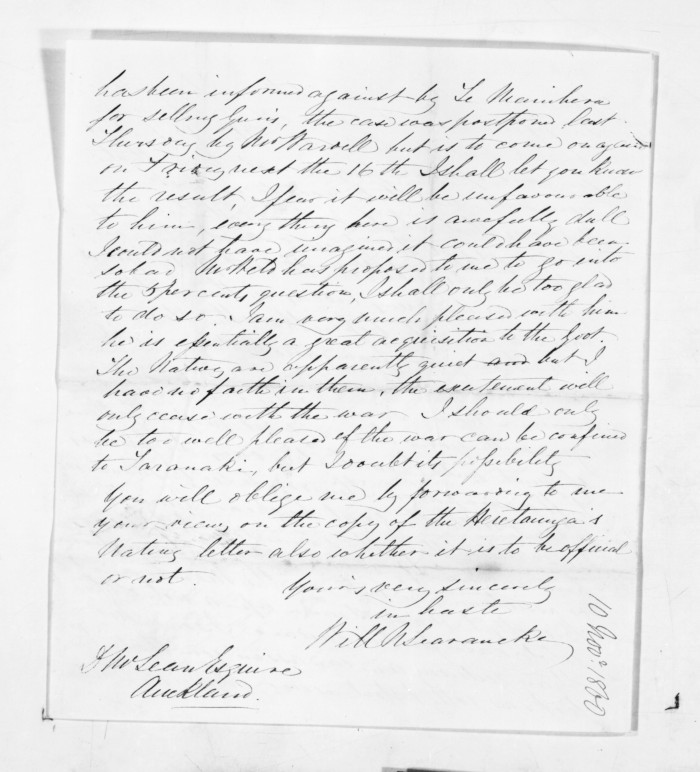 has been informed against by Te Manihera
for selling Guns, the case was postpond last
Thursday by Mr Wardell but is to come on again
on Friday next the 16th I shall let you know
the result, I fear it will be unfavourable
to him, every thing here is awefully dull
I could not have imagined it could have been
so bad Mr Weld has proposed to me to go into
the 5 percents question, I shall only be too glad
to do so. I am very much pleased with him
he is essentially a great acquisition to the Govt.
The Natives are apparently quiet and but I
have no faith in them, the excitement will
only cease with the war I should only
be too well pleased if the war can be confined
to Taranaki, but I doubt its possibility
You will oblige me by forwarding to me
your views on the copy of the Heretaunga's
Natives letter also whether it is to be official
or not.
Yours very sincerely
in haste
Will N Searancke
D McLean Esquire
Auckland.
10 Novr. 1860